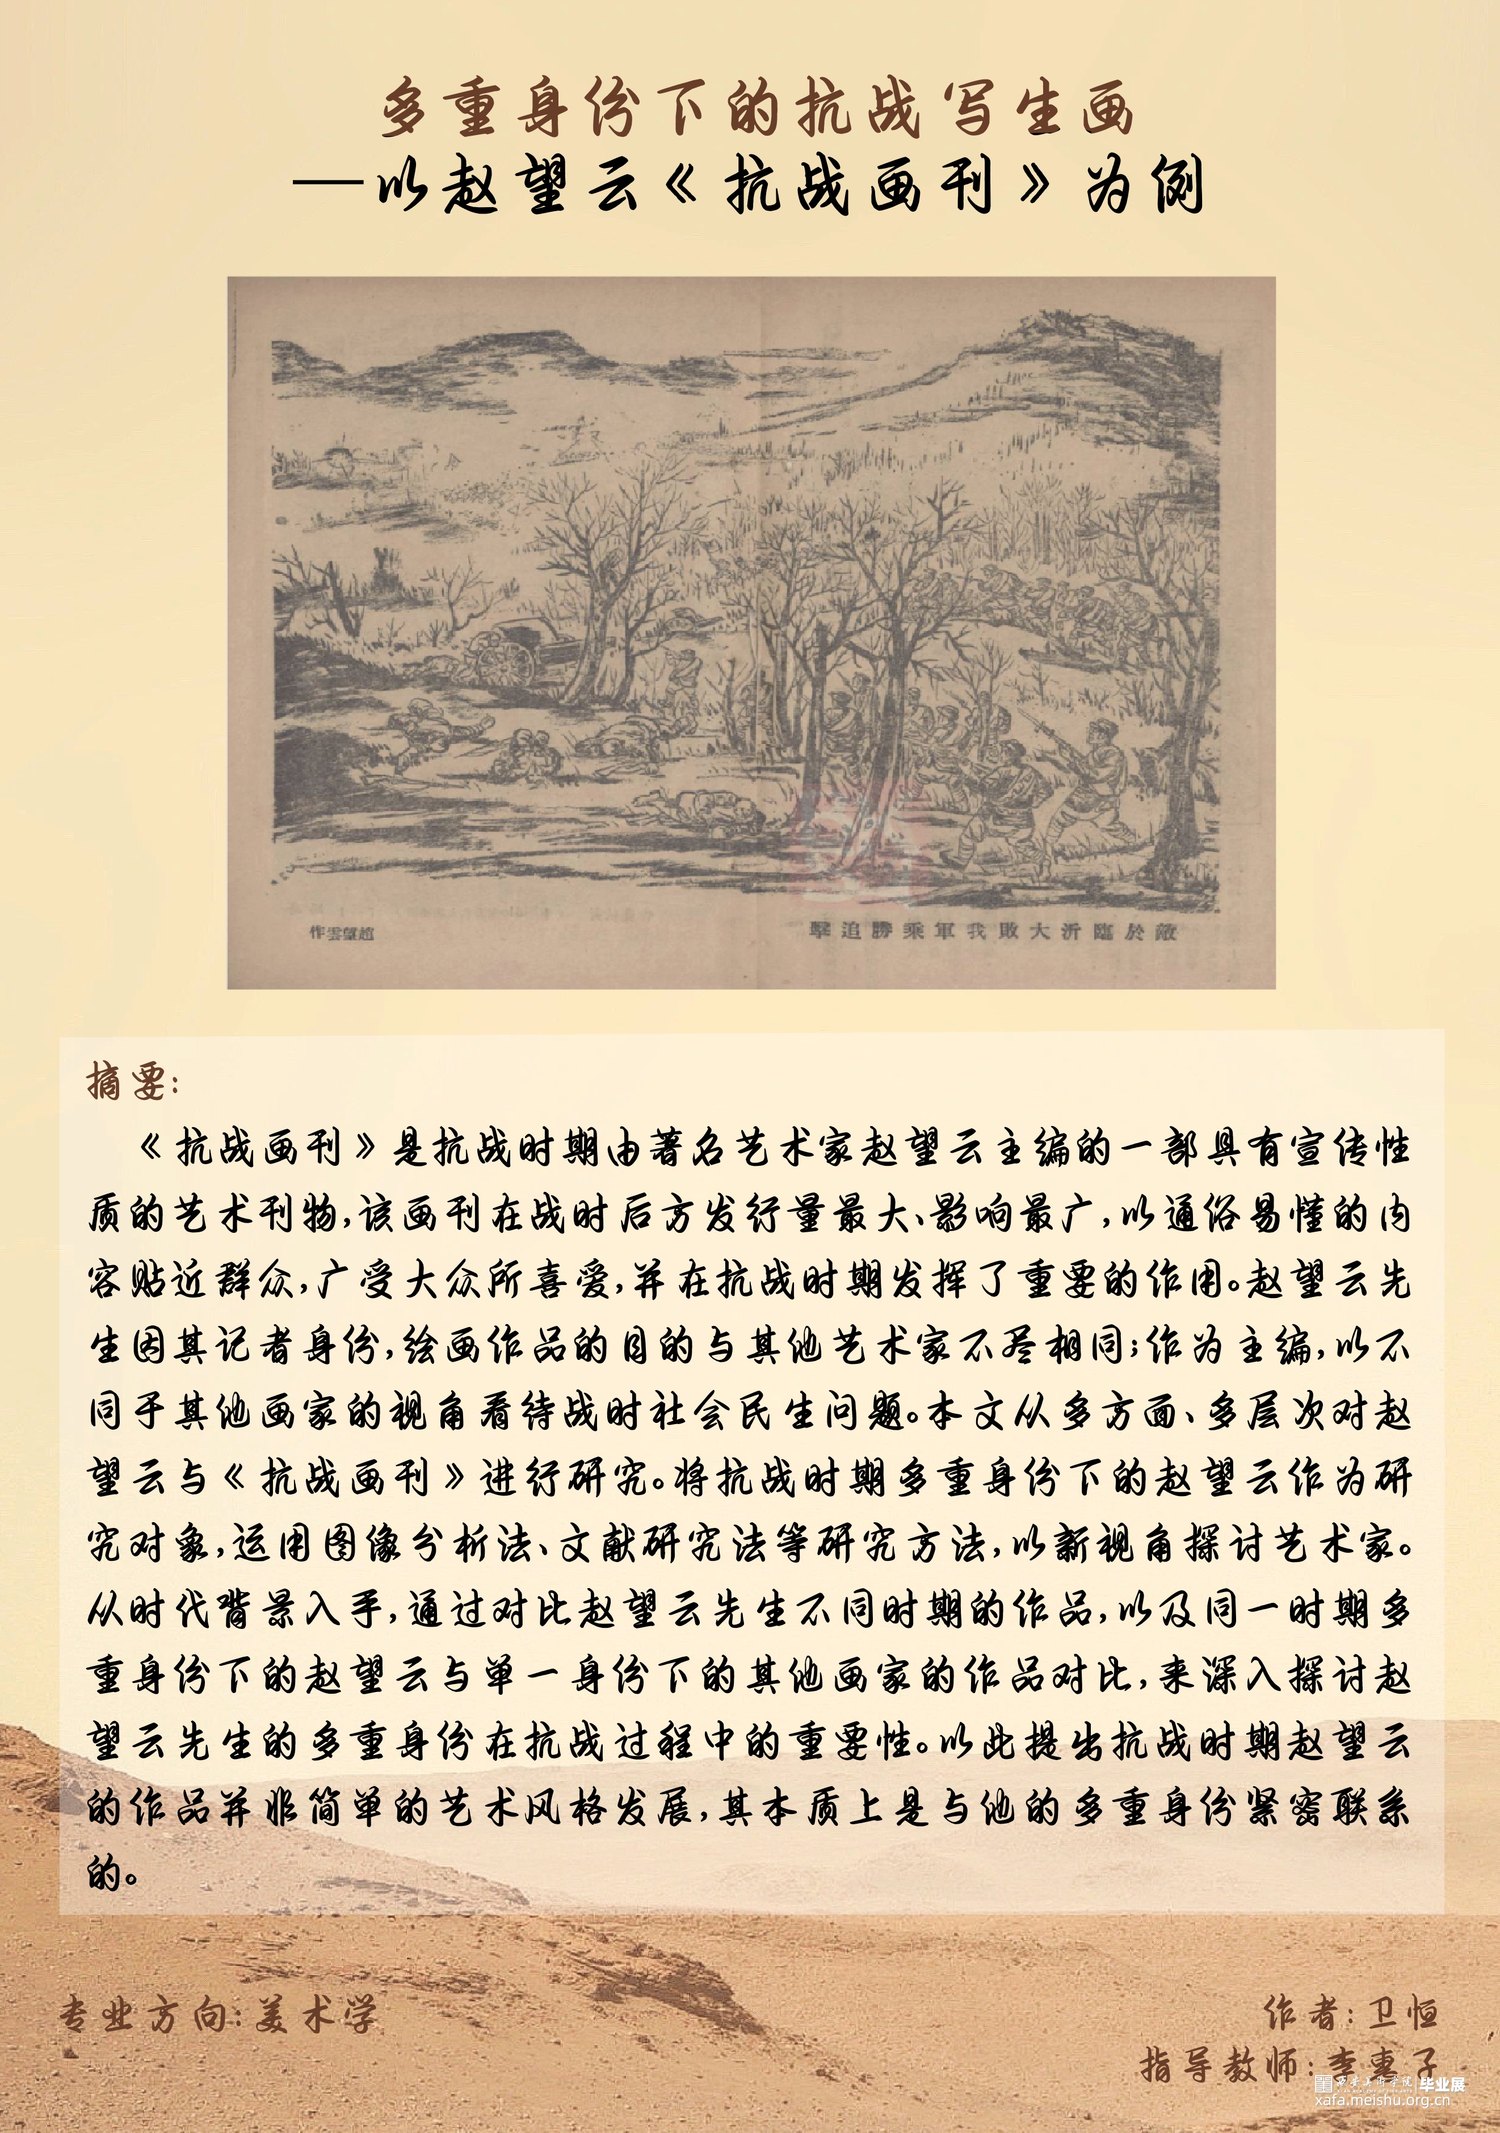 多重身份下的抗战写生画
—以赵望云《抗战画刊》为例
敵於臨沂大敗我軍乘勝追擊
趙望雲作
摘要:
《抗战画刊》是抗战时期由著名艺术家赵望云主编的一部具有宣传性
质的艺术刊物,该画刊在战时后方发行量最大、影响最广,以通俗易懂的内
容贴近群众,广受大众所喜爱,并在抗战时期发挥了重要的作用。赵望云先
生因其记者身份,绘画作品的目的与其他艺术家不尽相同;作为主编,以不
同于其他画家的视角看待战时社会民生问题。本文从多方面、多层次对赵
望云与《抗战画刊》进行研究。将抗战时期多重身份下的赵望云作为研
究对象,运用图像分析法、文献研究法等研究方法,以新视角探讨艺术家。
从时代背景入手,通过对比赵望云先生不同时期的作品,以及同一时期多
重身份下的赵望云与单一身份下的其他画家的作品对比,来深入探讨赵
望云先生的多重身份在抗战过程中的重要性。以此提出抗战时期赵望云
的作品并非简单的艺术风格发展,其本质上是与他的多重身份紧密联系
的。
专业方向:美术学
作者:卫恒
指导教师:李惠子
西安美术学院 毕业展
xafa.meishu.org.cn